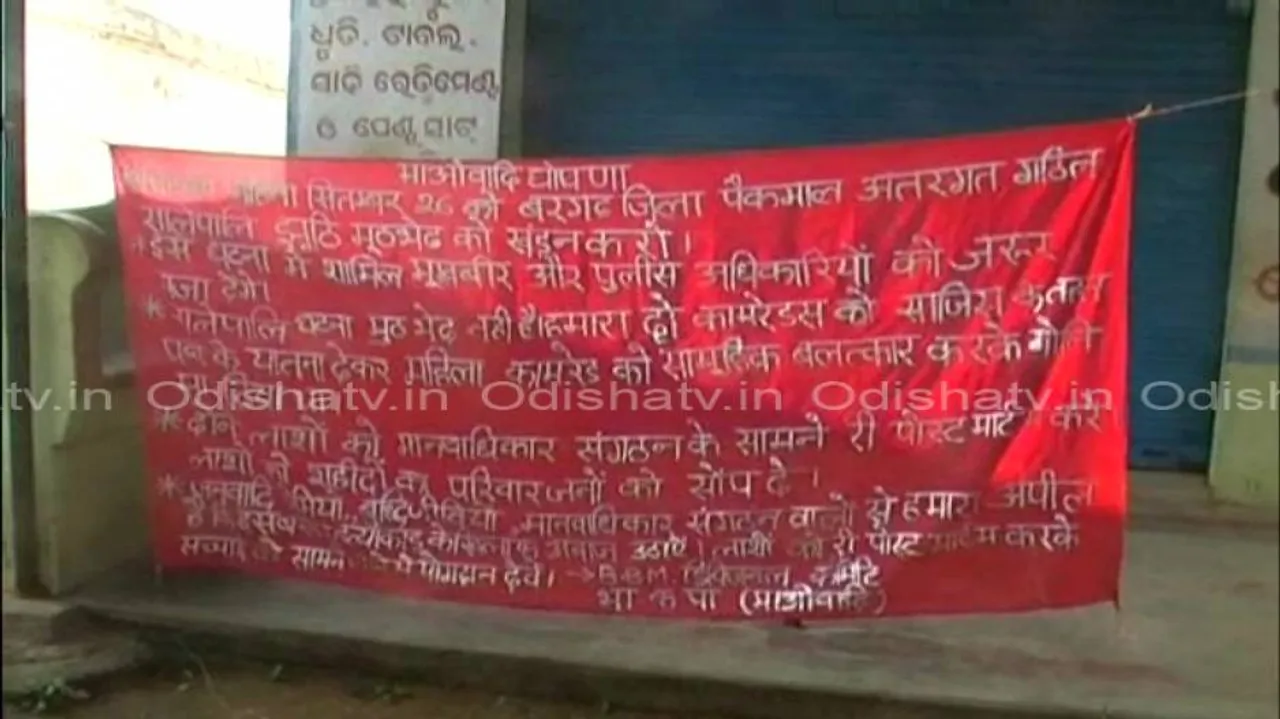 ଧୋତି. ଟାବଲ୍.
ସାଢ଼ି ରେଡିମେଣ୍ଟ
ଓ ପେଣ୍ଟ ସାର୍ଟ
माओवादि घोषणा
सितम्बर 26 को बरगढ जिला पैकमाल अतरगत गडिल
सालेपालि झुठि मूठभेढ को खंडन करो।
इस घटना में शामिल मूखबीर और पुलीस अधिकारियों को जरुर
सजा देगे।
* गलेपालि घटना मुठभेढ नही है। हमारा दो कामरेडस को साजिस कृतल
पन के यातना देकर महिला कामरेड को सामूहिक बलत्कार करके गोलि
* दोनो लाशों को मानवाधिकार संगठन के सामने री पोस्टमार्टम करे
लाशों को शहीदों का परिवारजनों को सोंप दे।
* बुद्धिजीविया मानवाधिकार संगठन वालों से हमारा अपील
है अवाज उठाऐ। लाशों को री पोस्टमार्टम करके
सच्चाई को सामने योगदान देवे। → B.B.M. डिविजनल कमेटि
भा क पा (माओवादि)
Odishatv.in Odishatv.in Odishatv.in